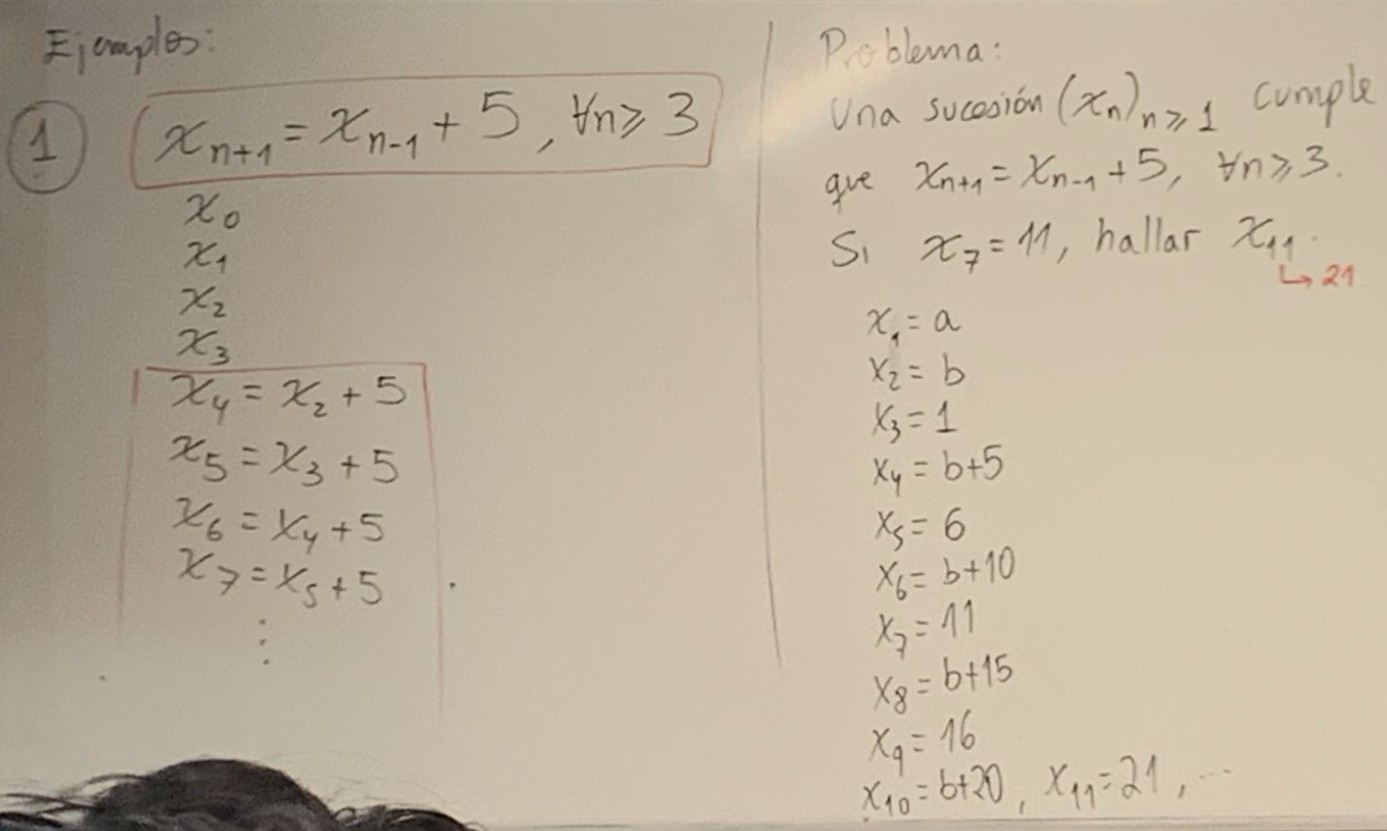 Ejemplos:
① xₙ₊₁ = xₙ₋₁ + 5, ∀n ≥ 3
x₀
x₁
x₂
x₃
x₄ = x₂ + 5
x₅ = x₃ + 5
x₆ = x₄ + 5
x₇ = x₅ + 5
⋮
Problema:
Una sucesión (xₙ)ₙ≥₁ cumple
que xₙ₊₁ = xₙ₋₁ + 5, ∀n ≥ 3.
Si x₇ = 11, hallar x₁₁.
↳ 21
x₁ = a
x₂ = b
x₃ = 1
x₄ = b+5
x₅ = 6
x₆ = b+10
x₇ = 11
x₈ = b+15
x₉ = 16
x₁₀ = b+20, x₁₁ = 21, ...